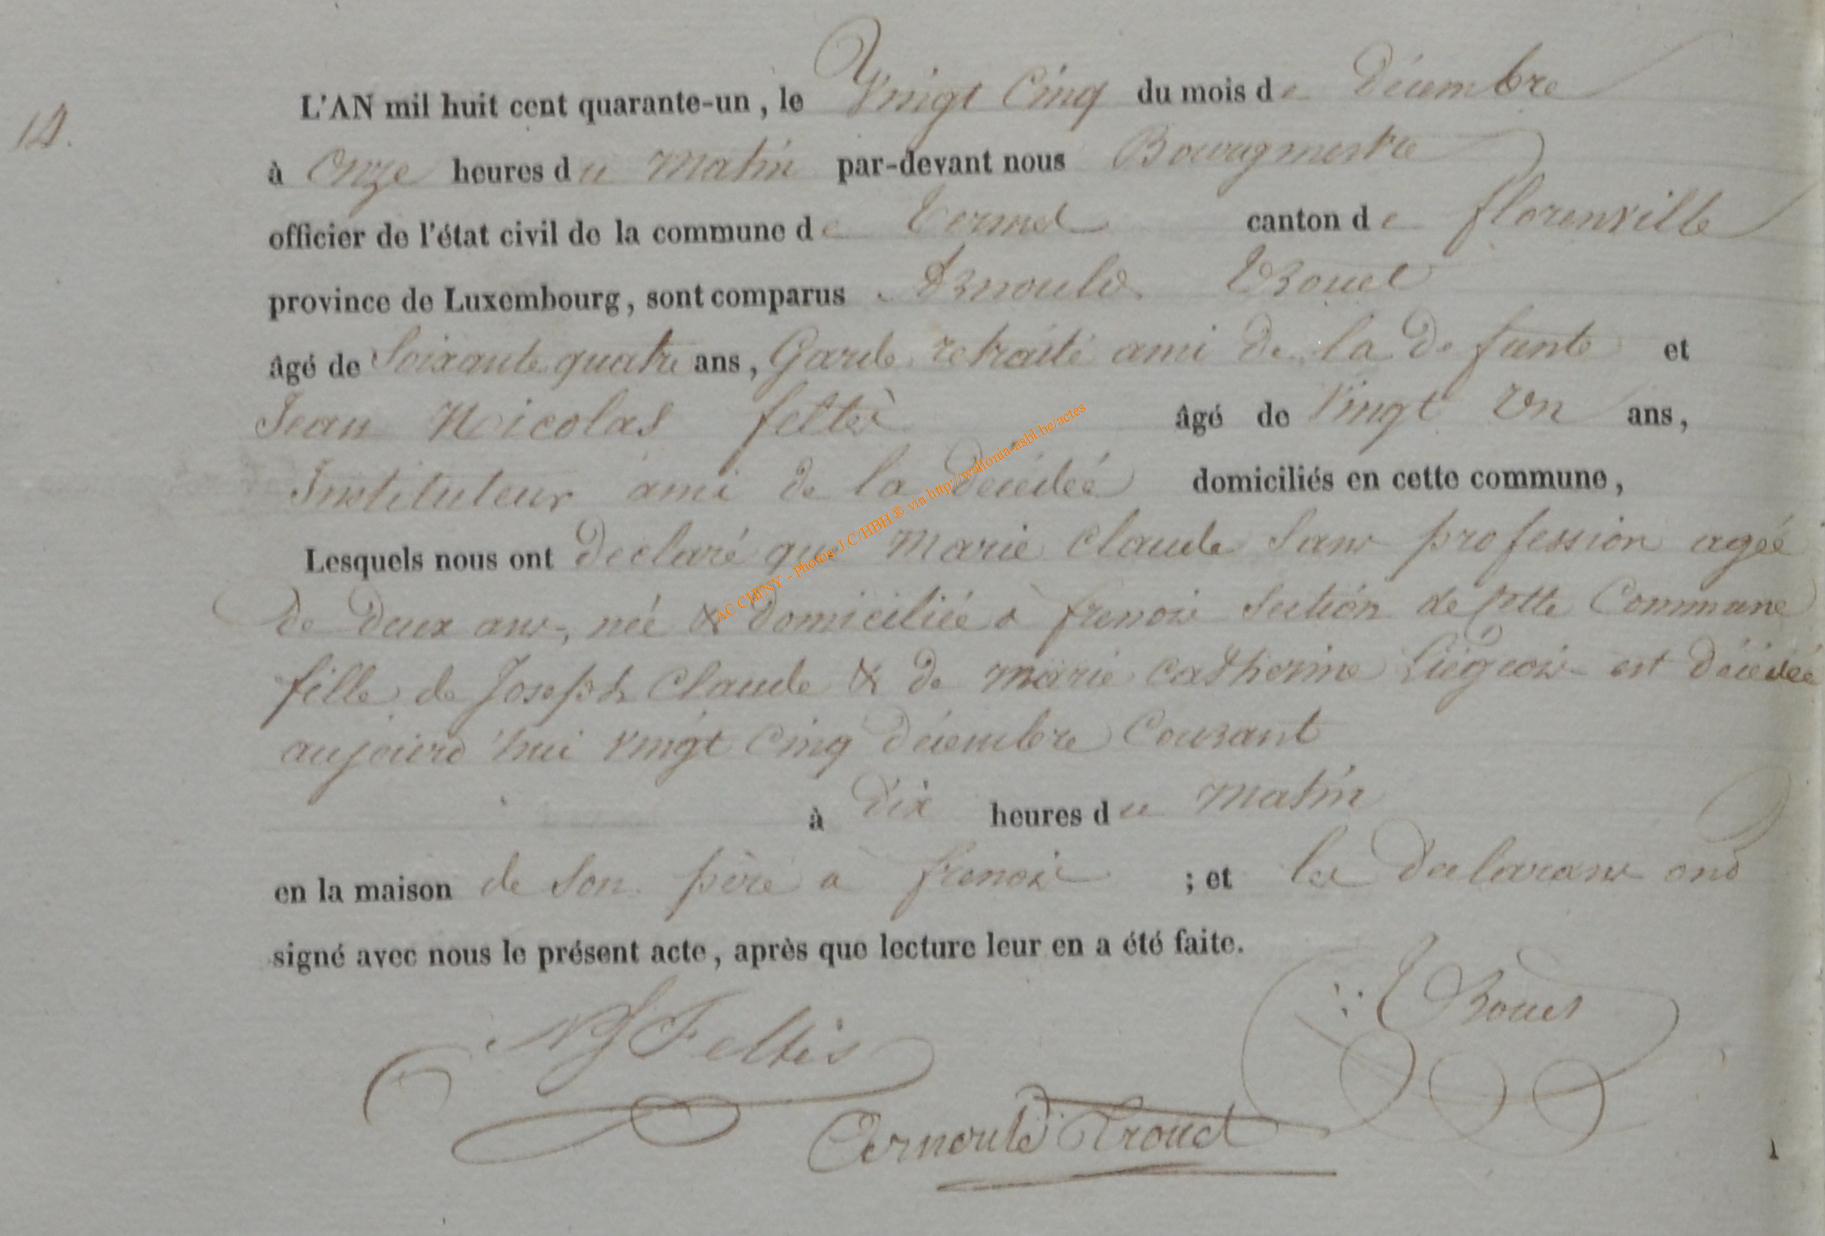 14.
L'AN mil huit cent quarante-un, le Vingt Cinq du mois de Décembre
à Onze heures du Matin par-devant nous Bourgmestre
officier de l'état civil de la commune de Termes canton de florenville
province de Luxembourg, sont comparus Arnould Trouet
âgé de Soixante quatre ans, Garde retraité ami de la defunte et
Jean Nicolas feltès âgé de Vingt Un ans,
Instituteur ami de la décédée domiciliés en cette commune,
Lesquels nous ont declaré que Marie Claude Sans profession agée
de deux ans, née & domiciliée à frenois Section de cette Commune
fille de Joseph Claude & de marie catherine Liégeois est décédée
aujourd'hui vingt Cinq décembre Courant
à dix heures du Matin
en la maison de Son père à frenois ; et les déclarans ond
signé avec nous le présent acte, après que lecture leur en a été faite.
NJ Feltès
Trouet
Arnould Trouet
AC CHINY - Photos J.C/HBH® via http://wallonia-asbl.be/actes